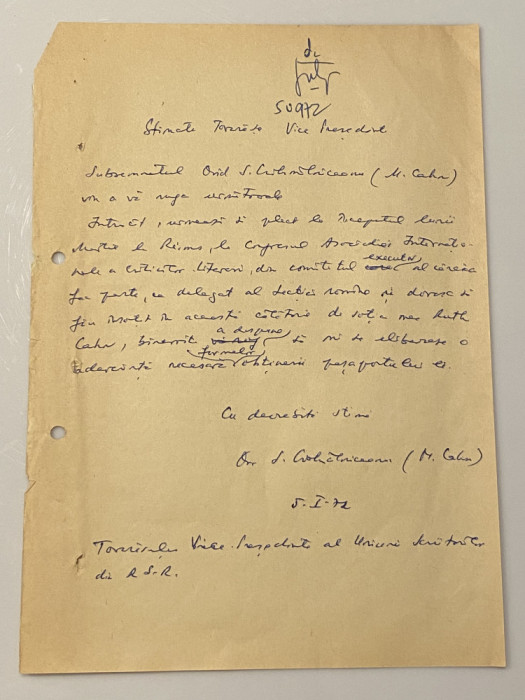 50972
Stimate Tovarășe Vice Președinte
Subsemnatul Ovid S. Crohmălniceanu (M. Cahn)
vin a vă ruga următoarele
Întrucît, urmează să plec la începutul lunii
Martie la Reims, la Congresul Asociației Internațio-
nale a Criticilor Literari, din comitetul executiv al căreia
fac parte, ca delegat al secției române și doresc să
fiu însoțit în această călătorie de soția mea Ruth
Cahn, binevoiți a dispune să mi se elibereze o
adeverință necesară formelor obținerii pașaportului ei.
Cu deosebită stimă
Ov. S. Crohmălniceanu (M. Cahn)
5-I-72
Tovarășului Vice Președinte al Uniunii Scriitorilor
din R.S.R.